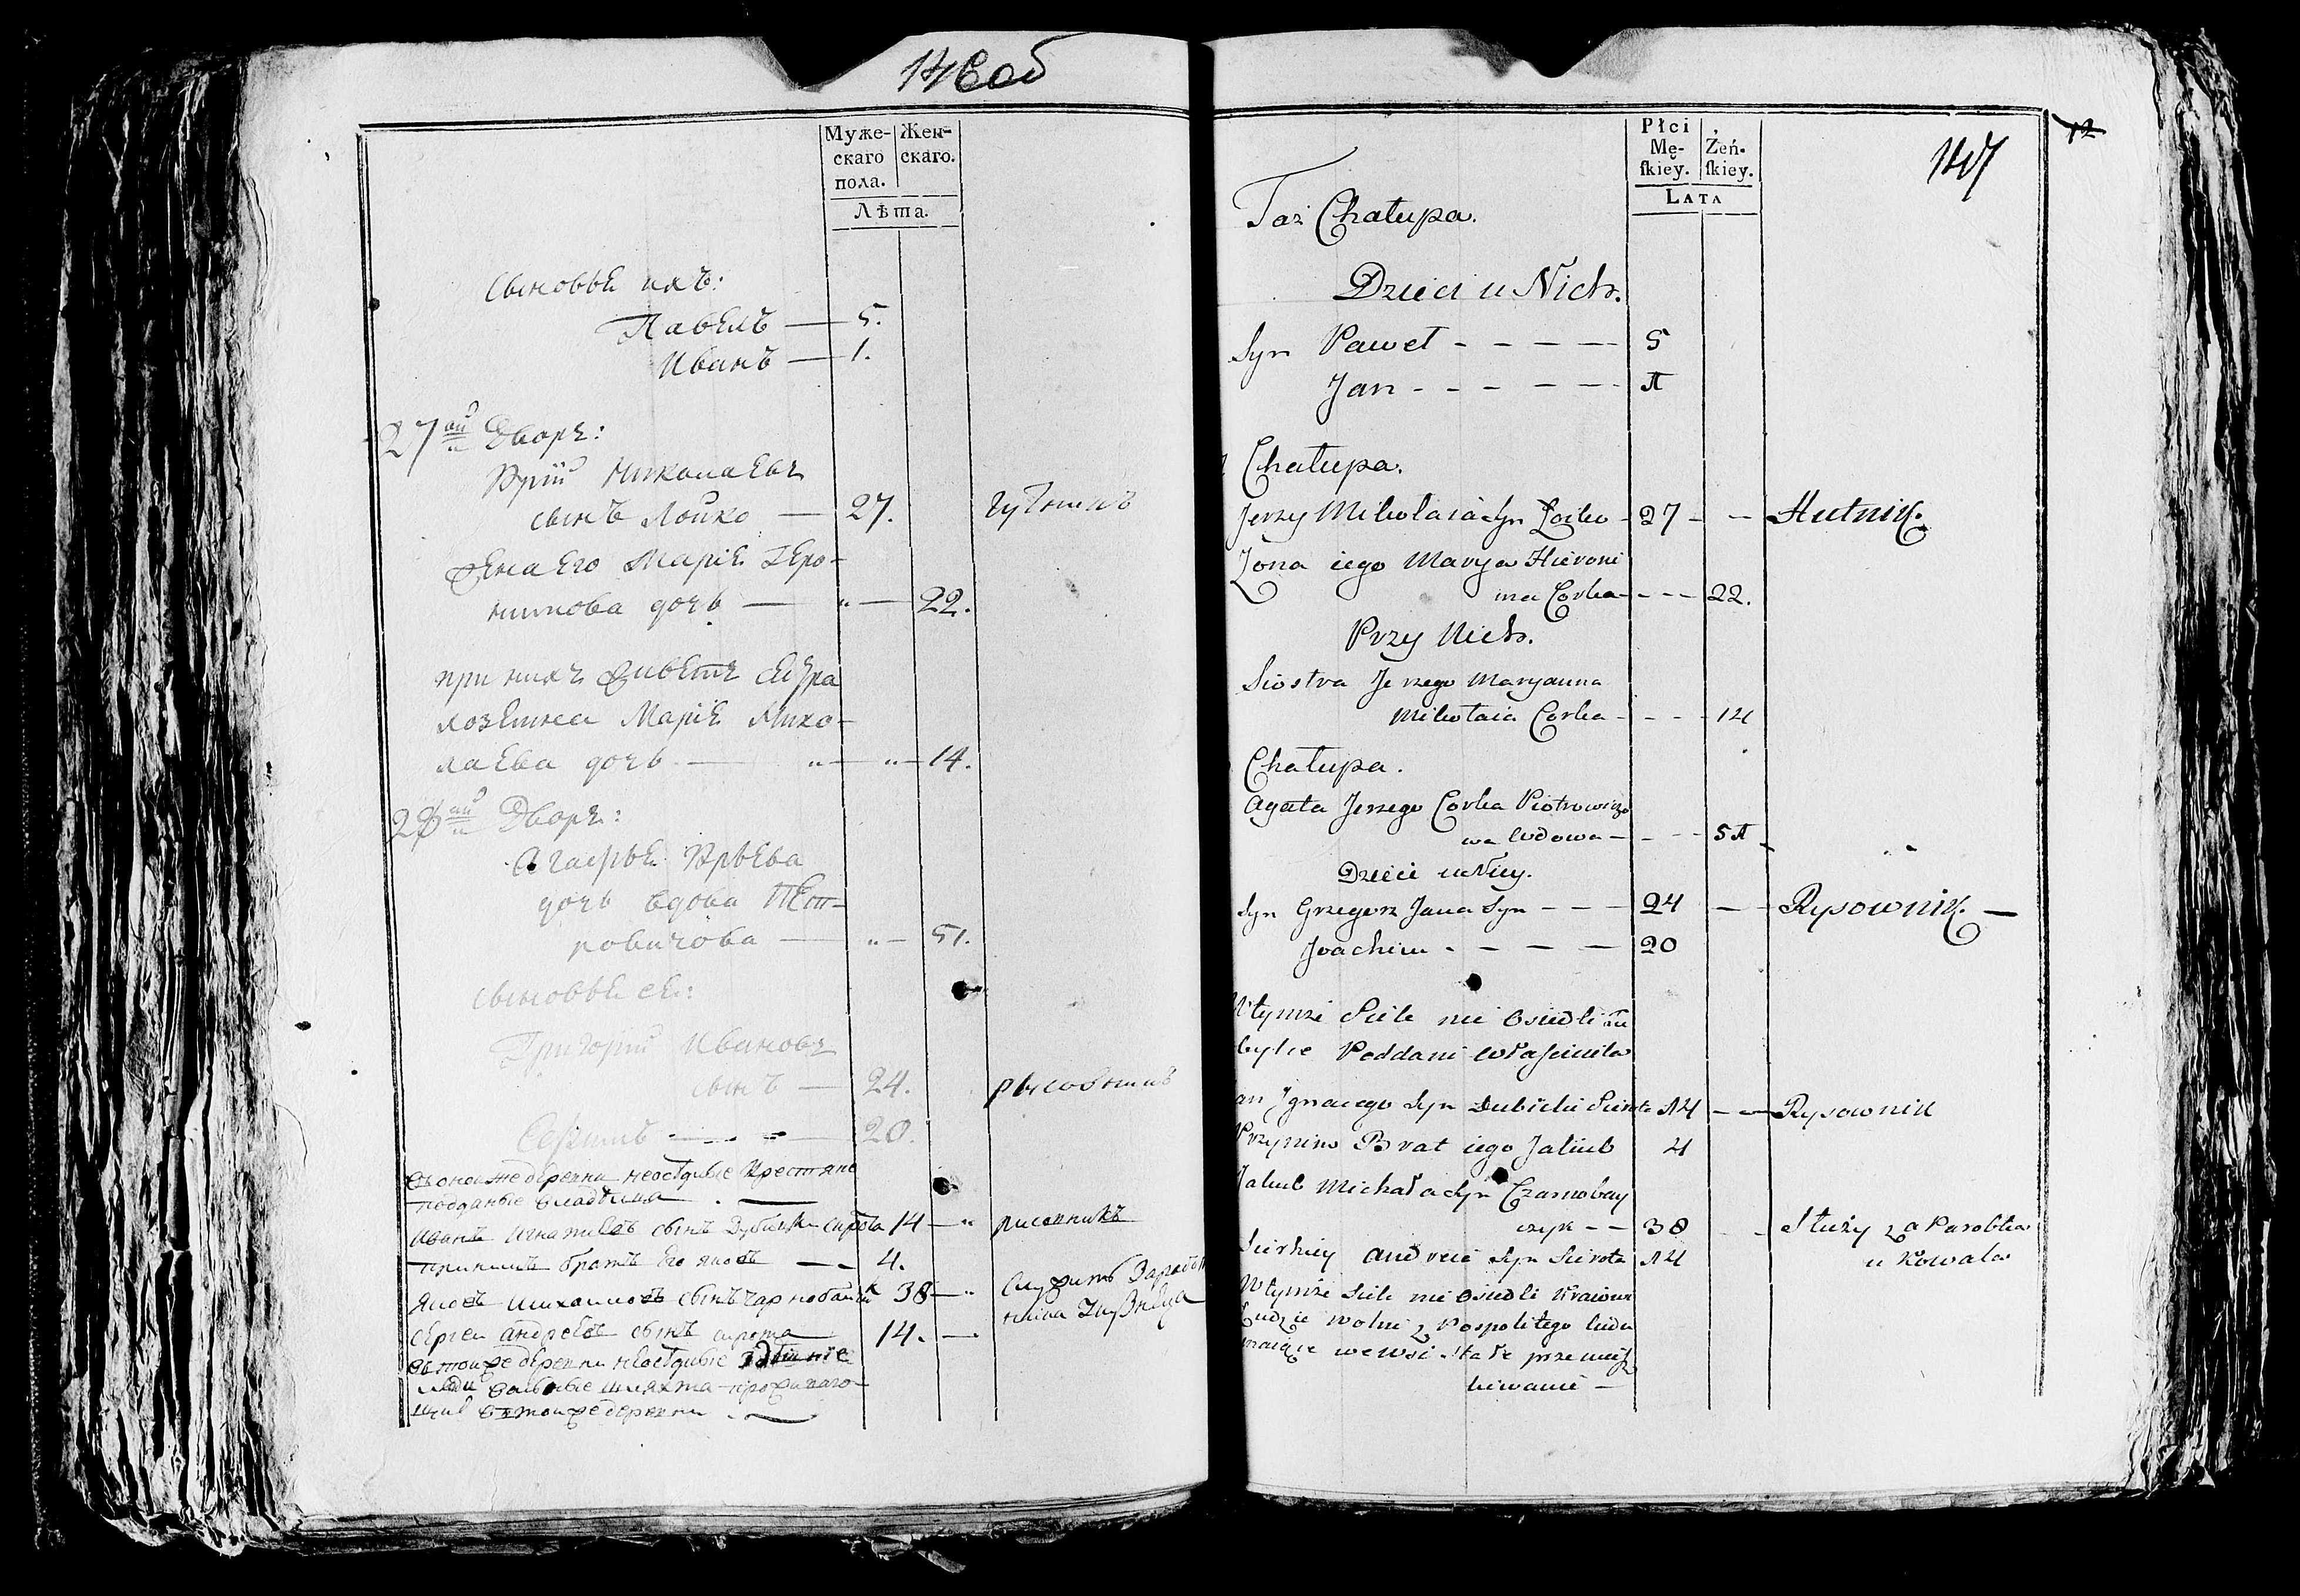 146 об
Муже-
скаго
пола.
Жен-
скаго.
Лѣта.
сыновьи ихъ:
Павелъ — 5.
Иванъ — 1.
27ой Дворъ:
Юрїй Николаевъ
сынъ Лойко — 27. гутникъ
жена его Марїя Геро-
нимова дочь — „ — 22.
при нихъ живетъ сестра
Марїя Нико-
лаева дочь — „ — „ — 14.
28ой Дворъ:
Агафья Юрьева
дочь вдова Пет-
ровичова — „ — 51.
сыновьи ее:
Григорїй Ивановъ
сынъ — 24. рисовникъ
20.
в оной же деревни неоседлые крестяне
подданые владельца
Иванъ Игнатиевъ сынъ Дубицки сирота 14 — „ рисовникъ
при нимъ братъ его яковъ — 4.
яковъ михаиловъ сынъ чарнобайчик 38 — „ служитъ
Сергеи андреевъ сынъ сирота 14. —
в тоиже деревни неоседлые
люди вольные
в тоиже деревни
147
12
Płci
Mę-
ſkiey.
Żeń-
ſkiey.
LATA
Taż Chałupa.
Dzieci u Nich.
Syn Paweł - - - - - 5
Jan - - - - - - 1
Chałupa.
Jerzy Mikołaia Syn Łoiko - 27 - - Hutnik.
Żona iego Marya Hieroni
ma Corka - - - 22.
Przy Nich.
Siostra Jerzego Maryanna
Mikołaia Corka - - - 14
Chałupa.
Agata Jerzego Corka Piotrowiczo
wa Wdowa - - - 51
Dzieci u Niey.
Syn Grzegorz Jana Syn - - - 24 - - Rysownik. —
Joachim - - - - - 20
Wtymże Siele nie Osiedli
Poddani Właściciela
Jan Jgnacego Syn Dubicki Sierota 14 - - Rysownik
Przynim Brat iego Jakub 4
Jakub Michała Syn Czarnobay
czyk - - 38 - Służy za Parobka
u Kowala
Sierhiey Andreia Syn Sierota 14
Wtymże Siele nie Osiedli Kraiowi
Ludzie wolni z Pospolitego ludu
maiące we wsi stałe przemiesz
kiwanie —